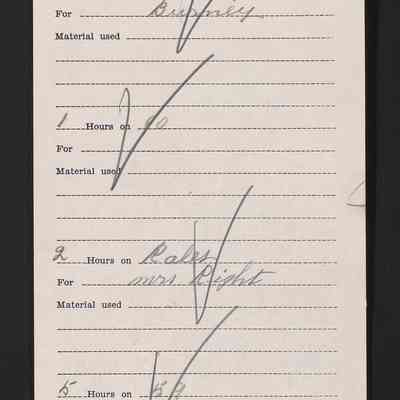 For Burney
Material used
1 Hours on 90
For
Material used
2 Hours on Rakes
For mrs Right
Material used
5 Hours on 59